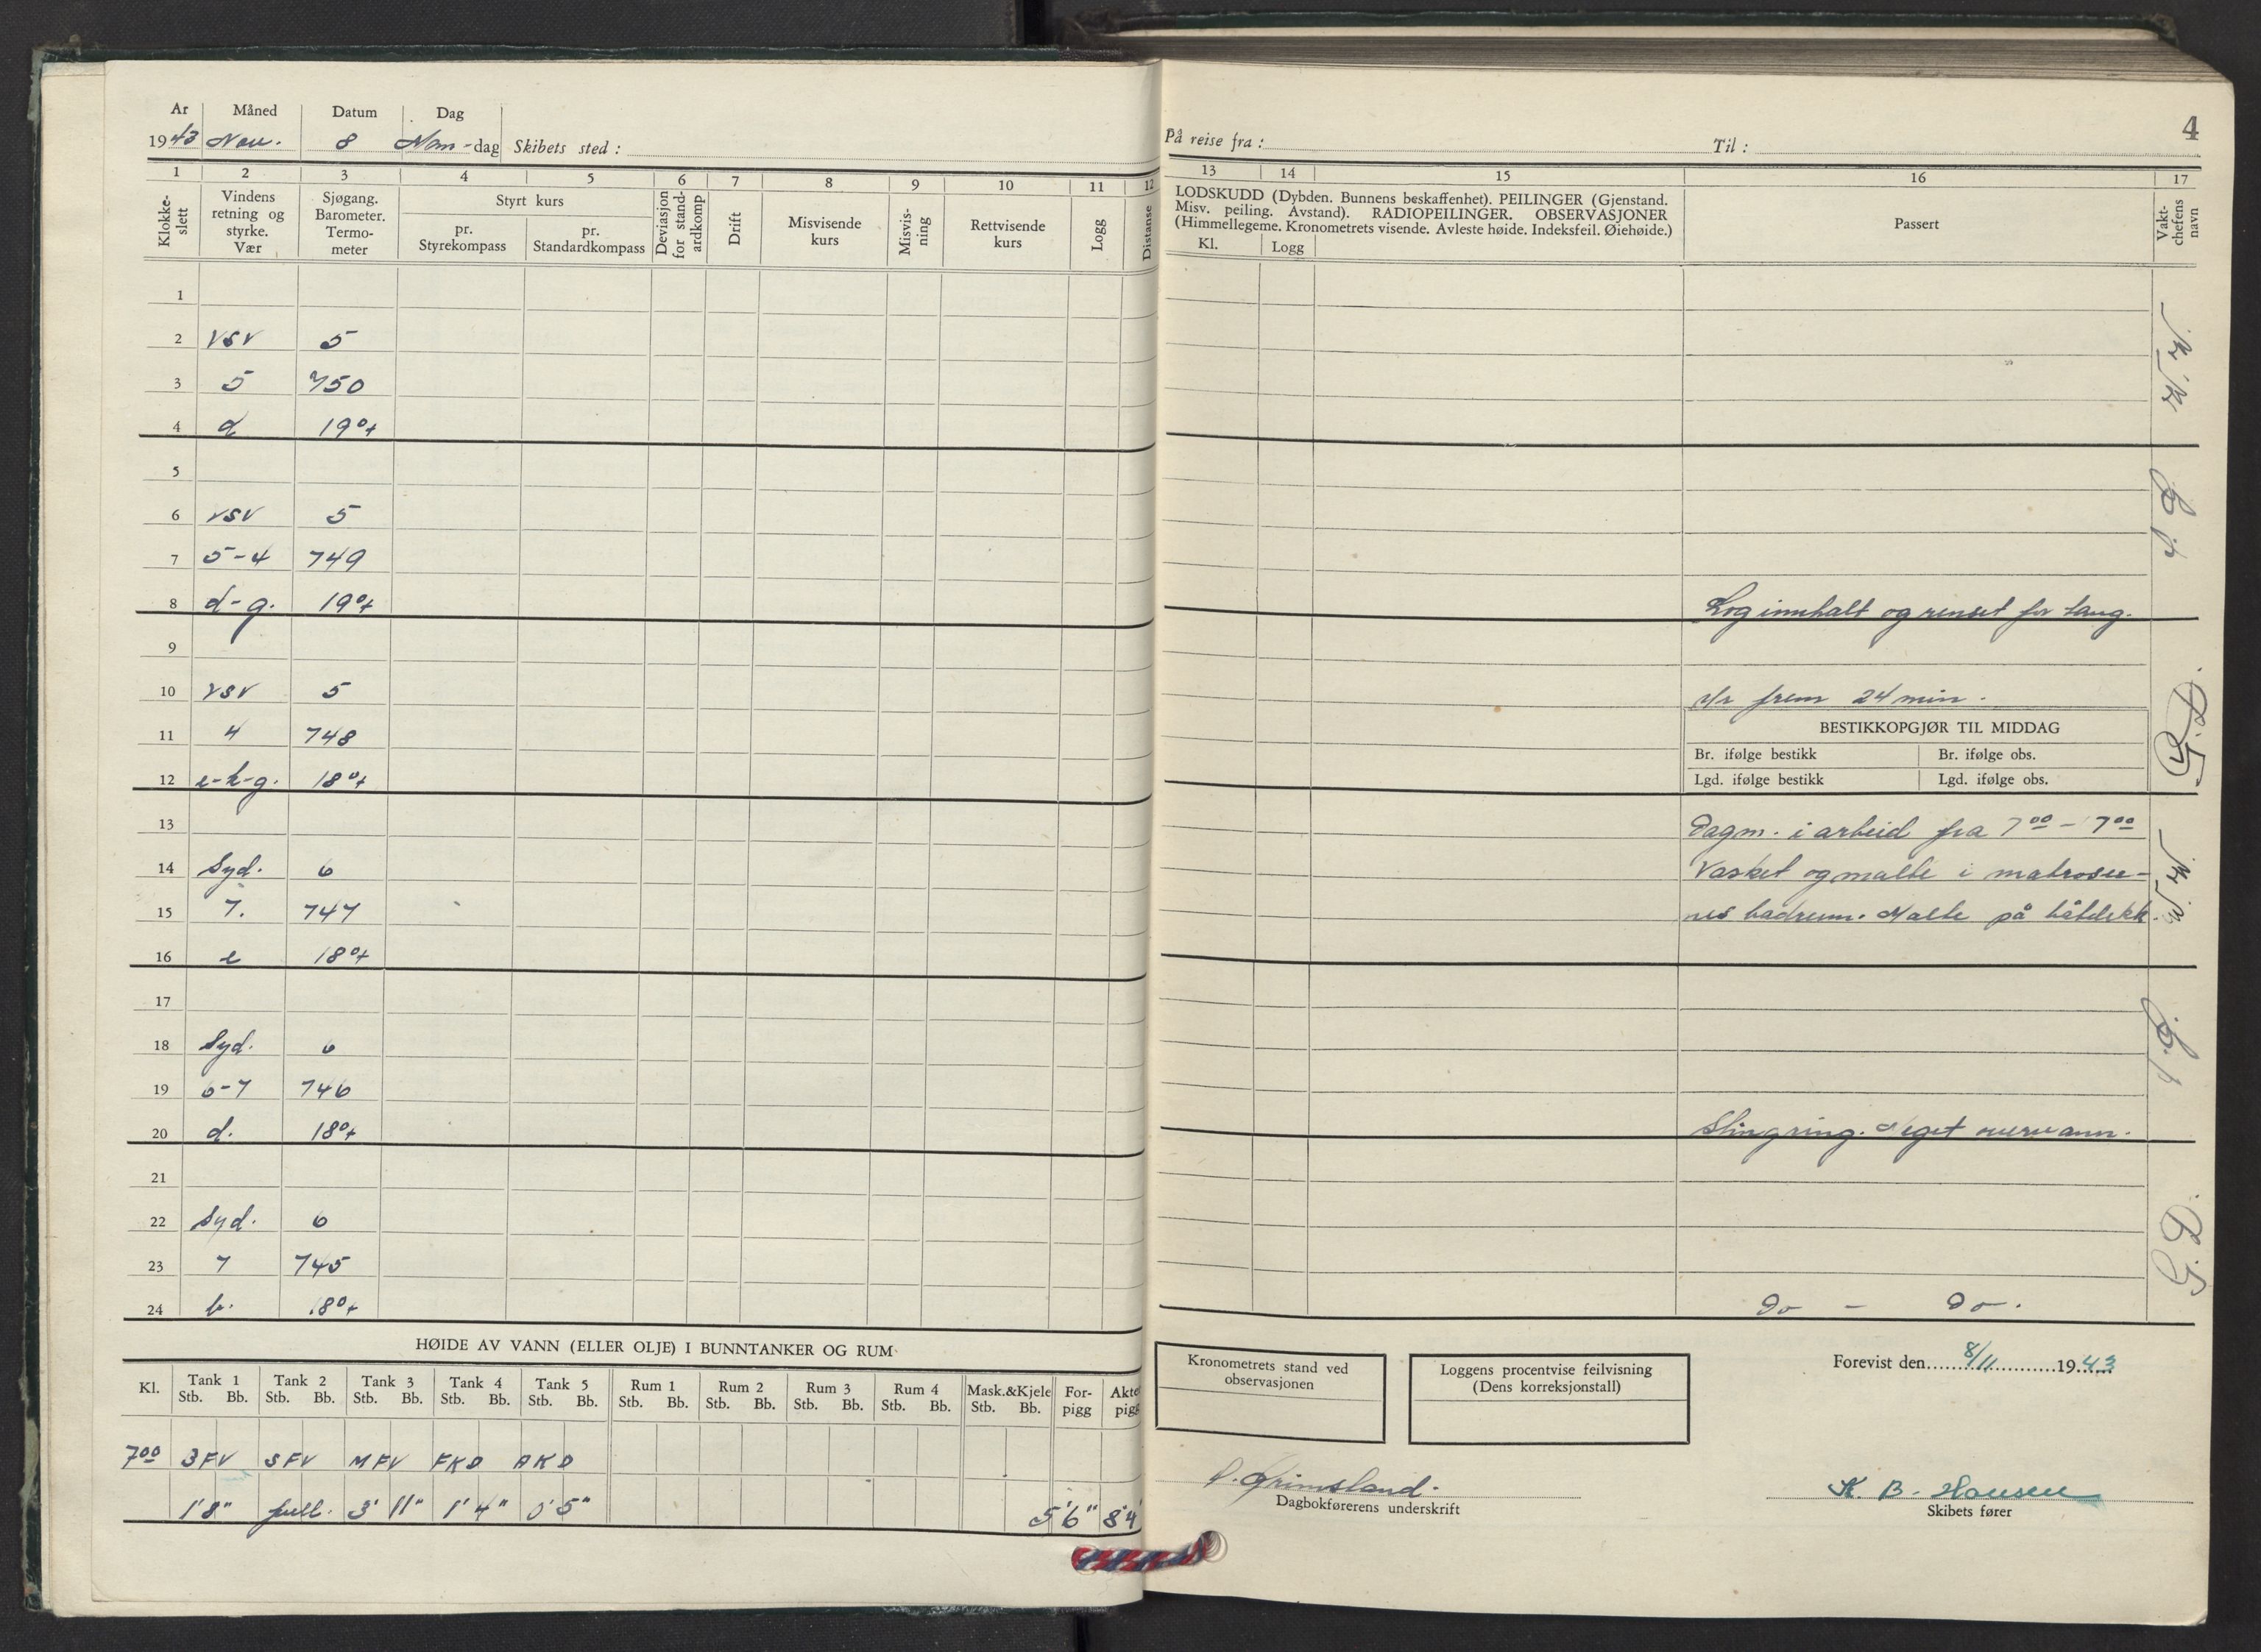 4
År Måned Datum Dag
1943 Nov. 8 Man-dag Skibets sted: På reise fra: Til:
1 2 3 4 5 6 7 8 9 10 11 12 13 14 15 16 17
Klokke-slett
Vindens retning og styrke. Vær
Sjøgang. Barometer. Termo-meter
Styrt kurs
pr. Styrekompass
pr. Standardkompass
Deviasjon for stand-ardkomp
Drift
Misvisende kurs
Misvis-ning
Rettvisende kurs
Logg
Distanse
LODSKUDD (Dybden. Bunnens beskaffenhet). PEILINGER (Gjenstand.
Misv. peiling. Avstand). RADIOPEILINGER. OBSERVASJONER
(Himmellegeme. Kronometrets visende. Avleste høide. Indeksfeil. Øiehøide.)
Kl. Logg
Passert
Vakt-chefens navn
1
2 VSV 5
3 5 750
4 d 19°+
5
6 VSV 5
7 5-4 749
8 d-g. 19°+ Log innhalt og renset for tang.
9
10 VSV 5 Ur frem 24 min.
11 4 748
BESTIKKOPGJØR TIL MIDDAG
Br. ifølge bestikk Br. ifølge obs.
12 18°+
Lgd. ifølge bestikk Lgd. ifølge obs.
G.D.
13 Dagm. i arbeid fra 7⁰⁰ - 17⁰⁰
14 Syd. 6 Vasket og malte i matrose-
15 7. 747 nes badrum. Malte på båtdekk.
16 e 18°+
17
18 Syd. 6
19 6-7 746
20 d. 18°+ Slingring. Meget overvann.
21
22 Syd. 6
23 7 745
24 b. 18°+ Do - Do.
G.D.
HØIDE AV VANN (ELLER OLJE) I BUNNTANKER OG RUM
Kl. Tank 1 Tank 2 Tank 3 Tank 4 Tank 5 Rum 1 Rum 2 Rum 3 Rum 4 Mask.&Kjele For-pigg Akter pigg
Stb. Bb. Stb. Bb. Stb. Bb. Stb. Bb. Stb. Bb. Stb. Bb. Stb. Bb. Stb. Bb. Stb. Bb. Stb. Bb.
7⁰⁰ BFV SFV MFV FKD AKD
1'8" full. 3' 11" 1'4" 0'5" 5'6" 8'4'
Kronometrets stand ved observasjonen
Loggens procentvise feilvisning
(Dens korreksjonstall)
Forevist den 8/11 1943
Grimsland.
Dagbokførerens underskrift
K. B. Hansen
Skibets fører